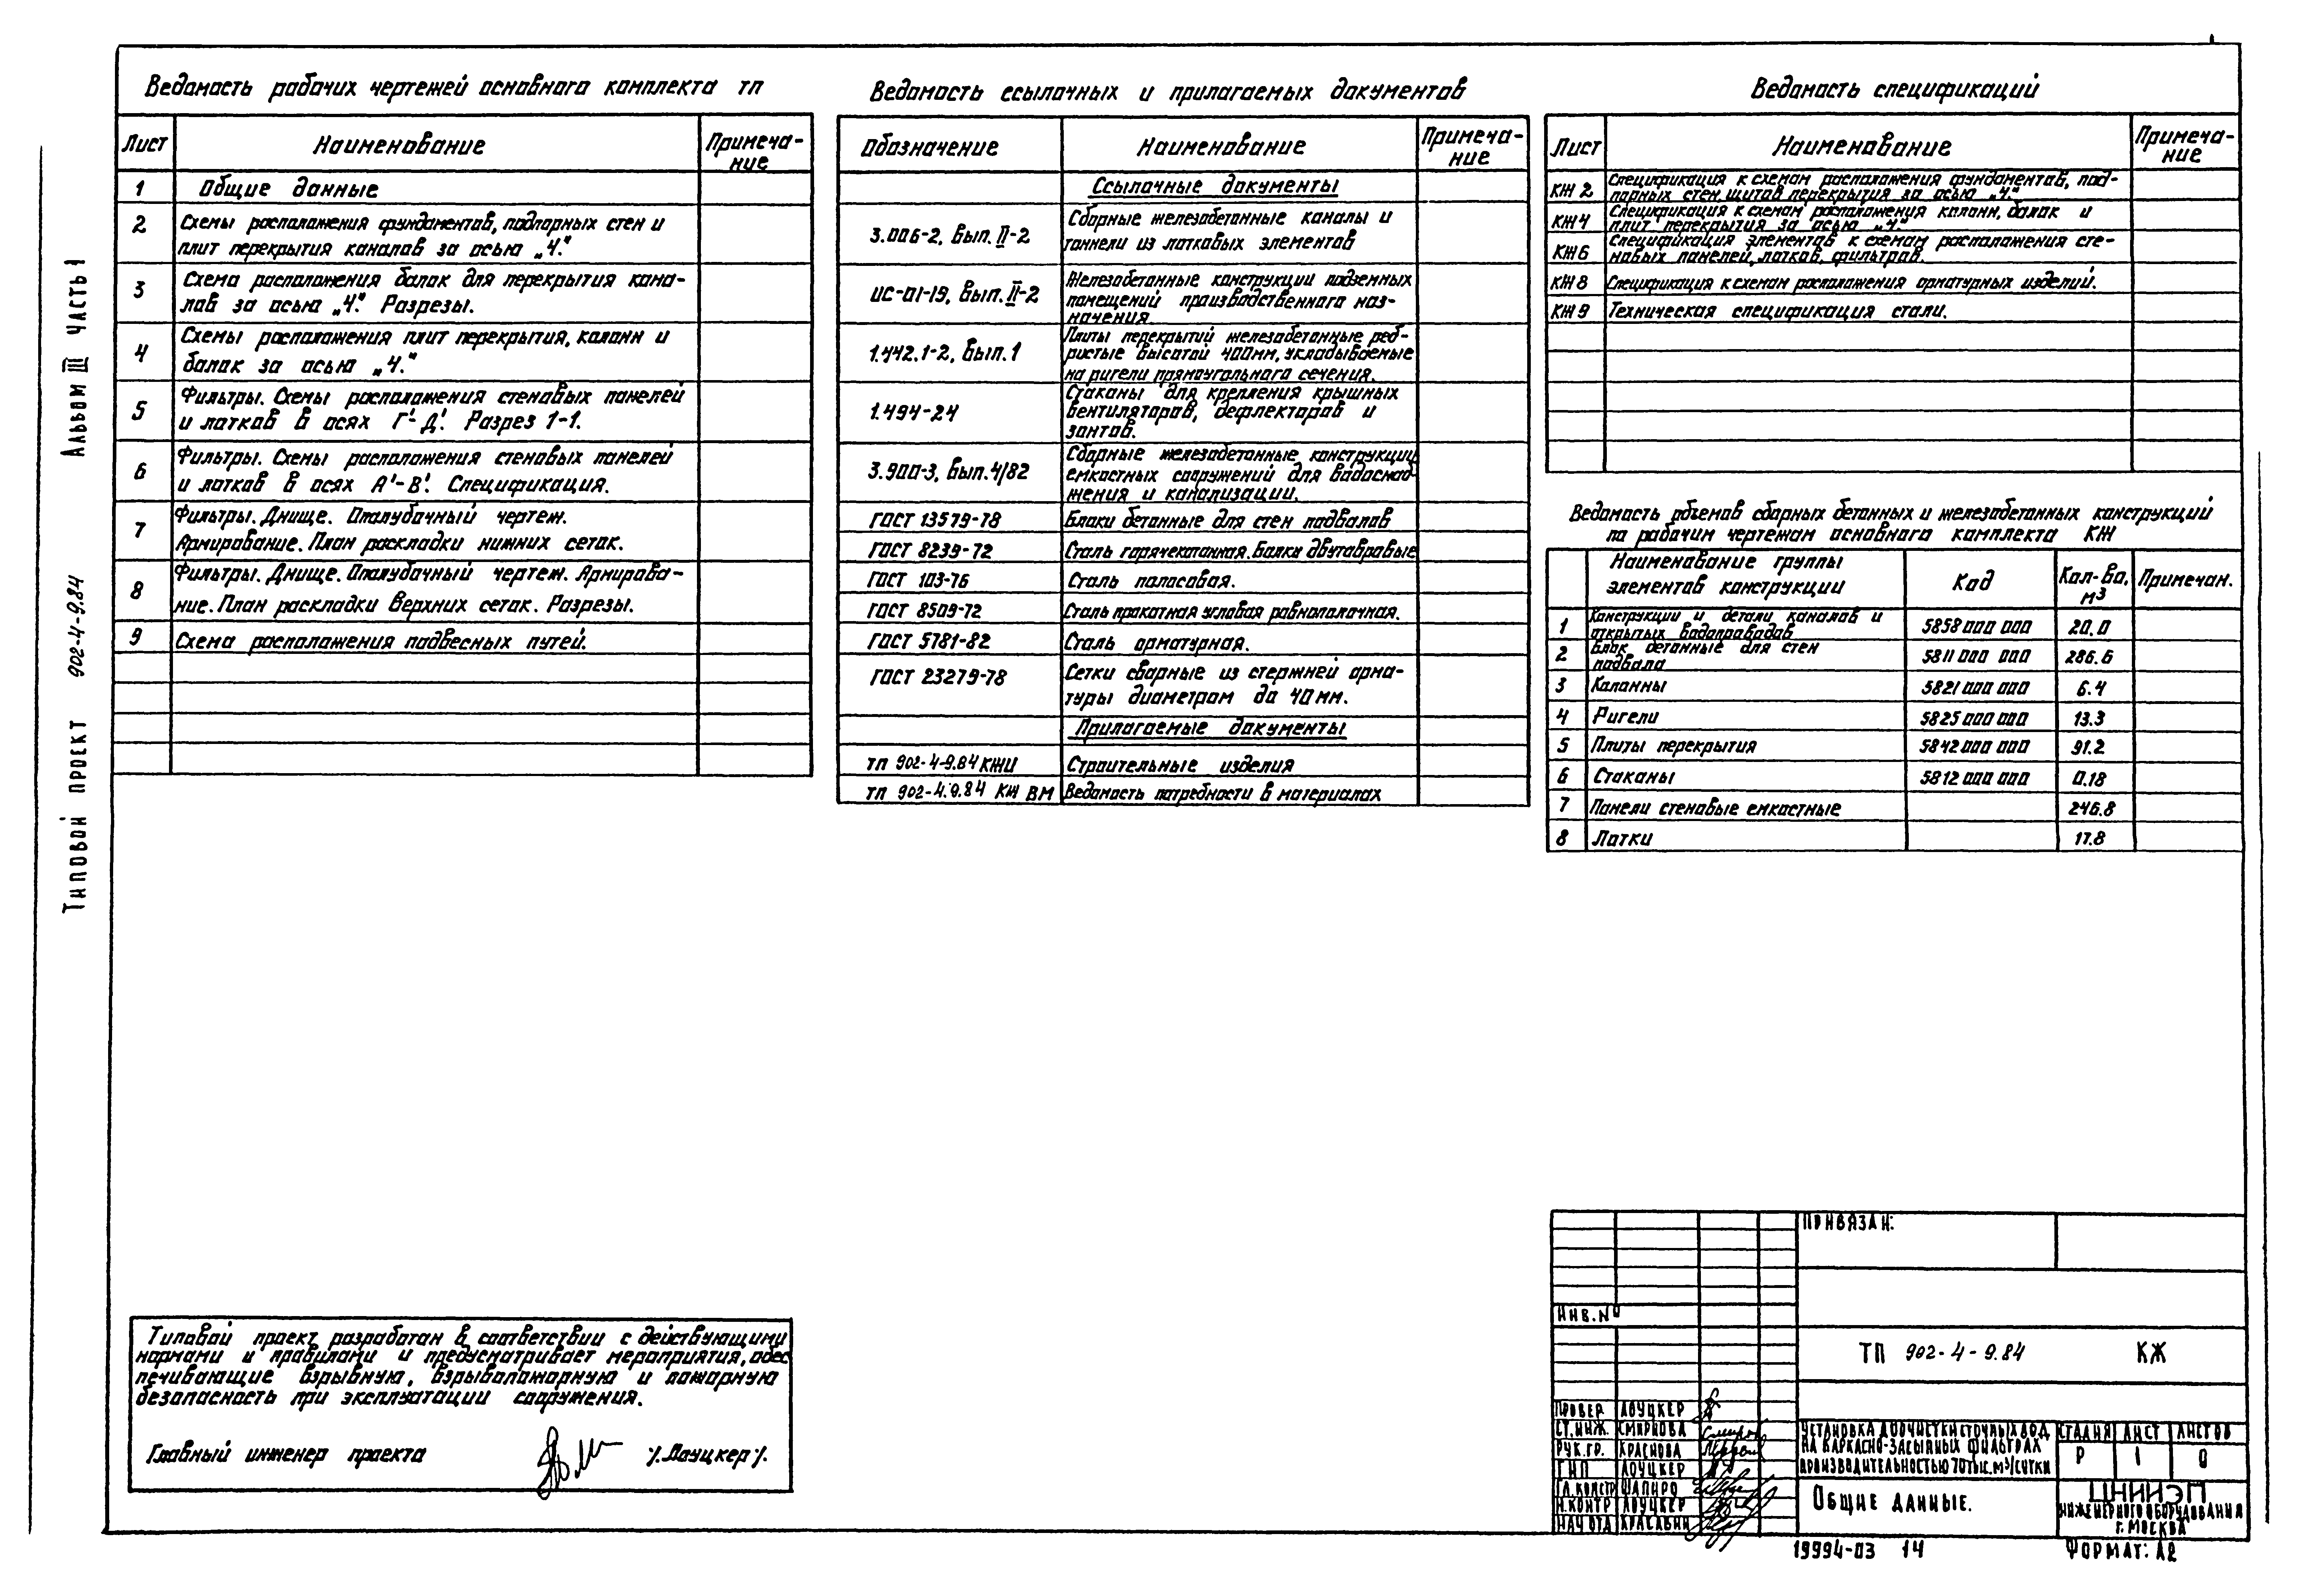 Альбом III часть 1
Типовой проект 902-4-9.84
Ведомость рабочих чертежей основного комплекта ТП
Лист Наименование Примеча-
ние
1 Общие данные
2 Схемы расположения фундаментов, подпорных стен и
плит перекрытия каналов за осью „4."
3 Схема расположения балок для перекрытия кана-
лов за осью „4." Разрезы.
4 Схемы расположения плит перекрытия, колонн и
балок за осью „4."
5 Фильтры. Схемы расположения стеновых панелей
и лотков в осях Г'-Д'. Разрез 1-1.
6 Фильтры. Схемы расположения стеновых панелей
и лотков в осях А'-В'. Спецификация.
7 Фильтры. Днище. Опалубочный чертеж.
Армирование. План раскладки нижних сеток.
8 Фильтры. Днище. Опалубочный чертеж. Армирова-
ние. План раскладки верхних сеток. Разрезы.
9 Схема расположения подвесных путей.
Ведомость ссылочных и прилагаемых документов
Обозначение Наименование Примеча-
ние
Ссылочные документы
3.006-2, вып. II-2 Сборные железобетонные каналы и
тоннели из лотковых элементов
ИС-01-19, вып. II-2 Железобетонные конструкции подземных
помещений производственного наз-
начения.
1.442.1-2, вып. 1 Плиты перекрытий железобетонные реб-
ристые высотой 400мм, укладываемые
на ригели прямоугольного сечения.
1.494-24 Стаканы для крепления крышных
вентиляторов, дефлекторов и
зонтов.
3.900-3, вып. 4/82 Сборные железобетонные конструкции
емкостных сооружений для водоснаб-
жения и канализации.
ГОСТ 13579-78 Блоки бетонные для стен подвалов
ГОСТ 8239-72 Сталь горячекатанная. Балки двутавровые
ГОСТ 103-76 Сталь полосовая.
ГОСТ 8509-72 Сталь прокатная угловая равнополочная.
ГОСТ 5781-82 Сталь арматурная.
ГОСТ 23279-78 Сетки сварные из стержней арма-
туры диаметром до 40 мм.
Прилагаемые документы
ТП 902-4-9.84 КЖИ Строительные изделия
ТП 902-4.9.84 КЖ ВМ Ведомость потребности в материалах
Ведомость спецификаций
Лист Наименование Примеча-
ние
КЖ 2 Спецификация к схемам расположения фундаментов, под-
порных стен, щитов перекрытия за осью „4."
КЖ 4 Спецификация к схемам расположения колонн, балок и
плит перекрытия за осью „4."
КЖ 6 Спецификация элементов к схемам расположения сте-
новых панелей, лотков, фильтров.
КЖ 8 Спецификация к схемам расположения арматурных изделий.
КЖ 9 Техническая спецификация стали.
Ведомость объемов сборных бетонных и железобетонных конструкций
по рабочим чертежам основного комплекта КЖ
Наименование группы
элементов конструкции Код Кол-во, м³ Примечан.
1 Конструкции и детали каналов и
открытых водопроводов 5858 000 000 20.0
2 Блок бетонные для стен
подвала 5811 000 000 286.6
3 Колонны 5821 000 000 6.4
4 Ригели 5825 000 000 13.3
5 Плиты перекрытия 5842 000 000 91.2
6 Стаканы 5812 000 000 0.18
7 Панели стеновые емкостные 246.8
8 Лотки 17.8
Типовой проект разработан в соответствии с действующими
нормами и правилами и предусматривает мероприятия, обес
печивающие взрывную, взрывопожарную и пожарную
безопасность при эксплуатации сооружения.
Главный инженер проекта /Лоуцкер/.
Привязан:
Инв. №
ТП 902-4-9.84 КЖ
Провер Лоуцкер
Ст. инж. Смирнова
Рук. гр. Краснова
ГИП Лоуцкер
Гл. констр Шапиро
Н. контр Лоуцкер
Нач отд Красавин
Установка доочистки сточных вод
на каркасно-засыпных фильтрах
производительностью 70 тыс. м³/сутки
Стадия Лист Листов
Р 1
Общие данные.
ЦНИИЭП
инженерного оборудования
г. Москва
19994-03 14
Формат: А2